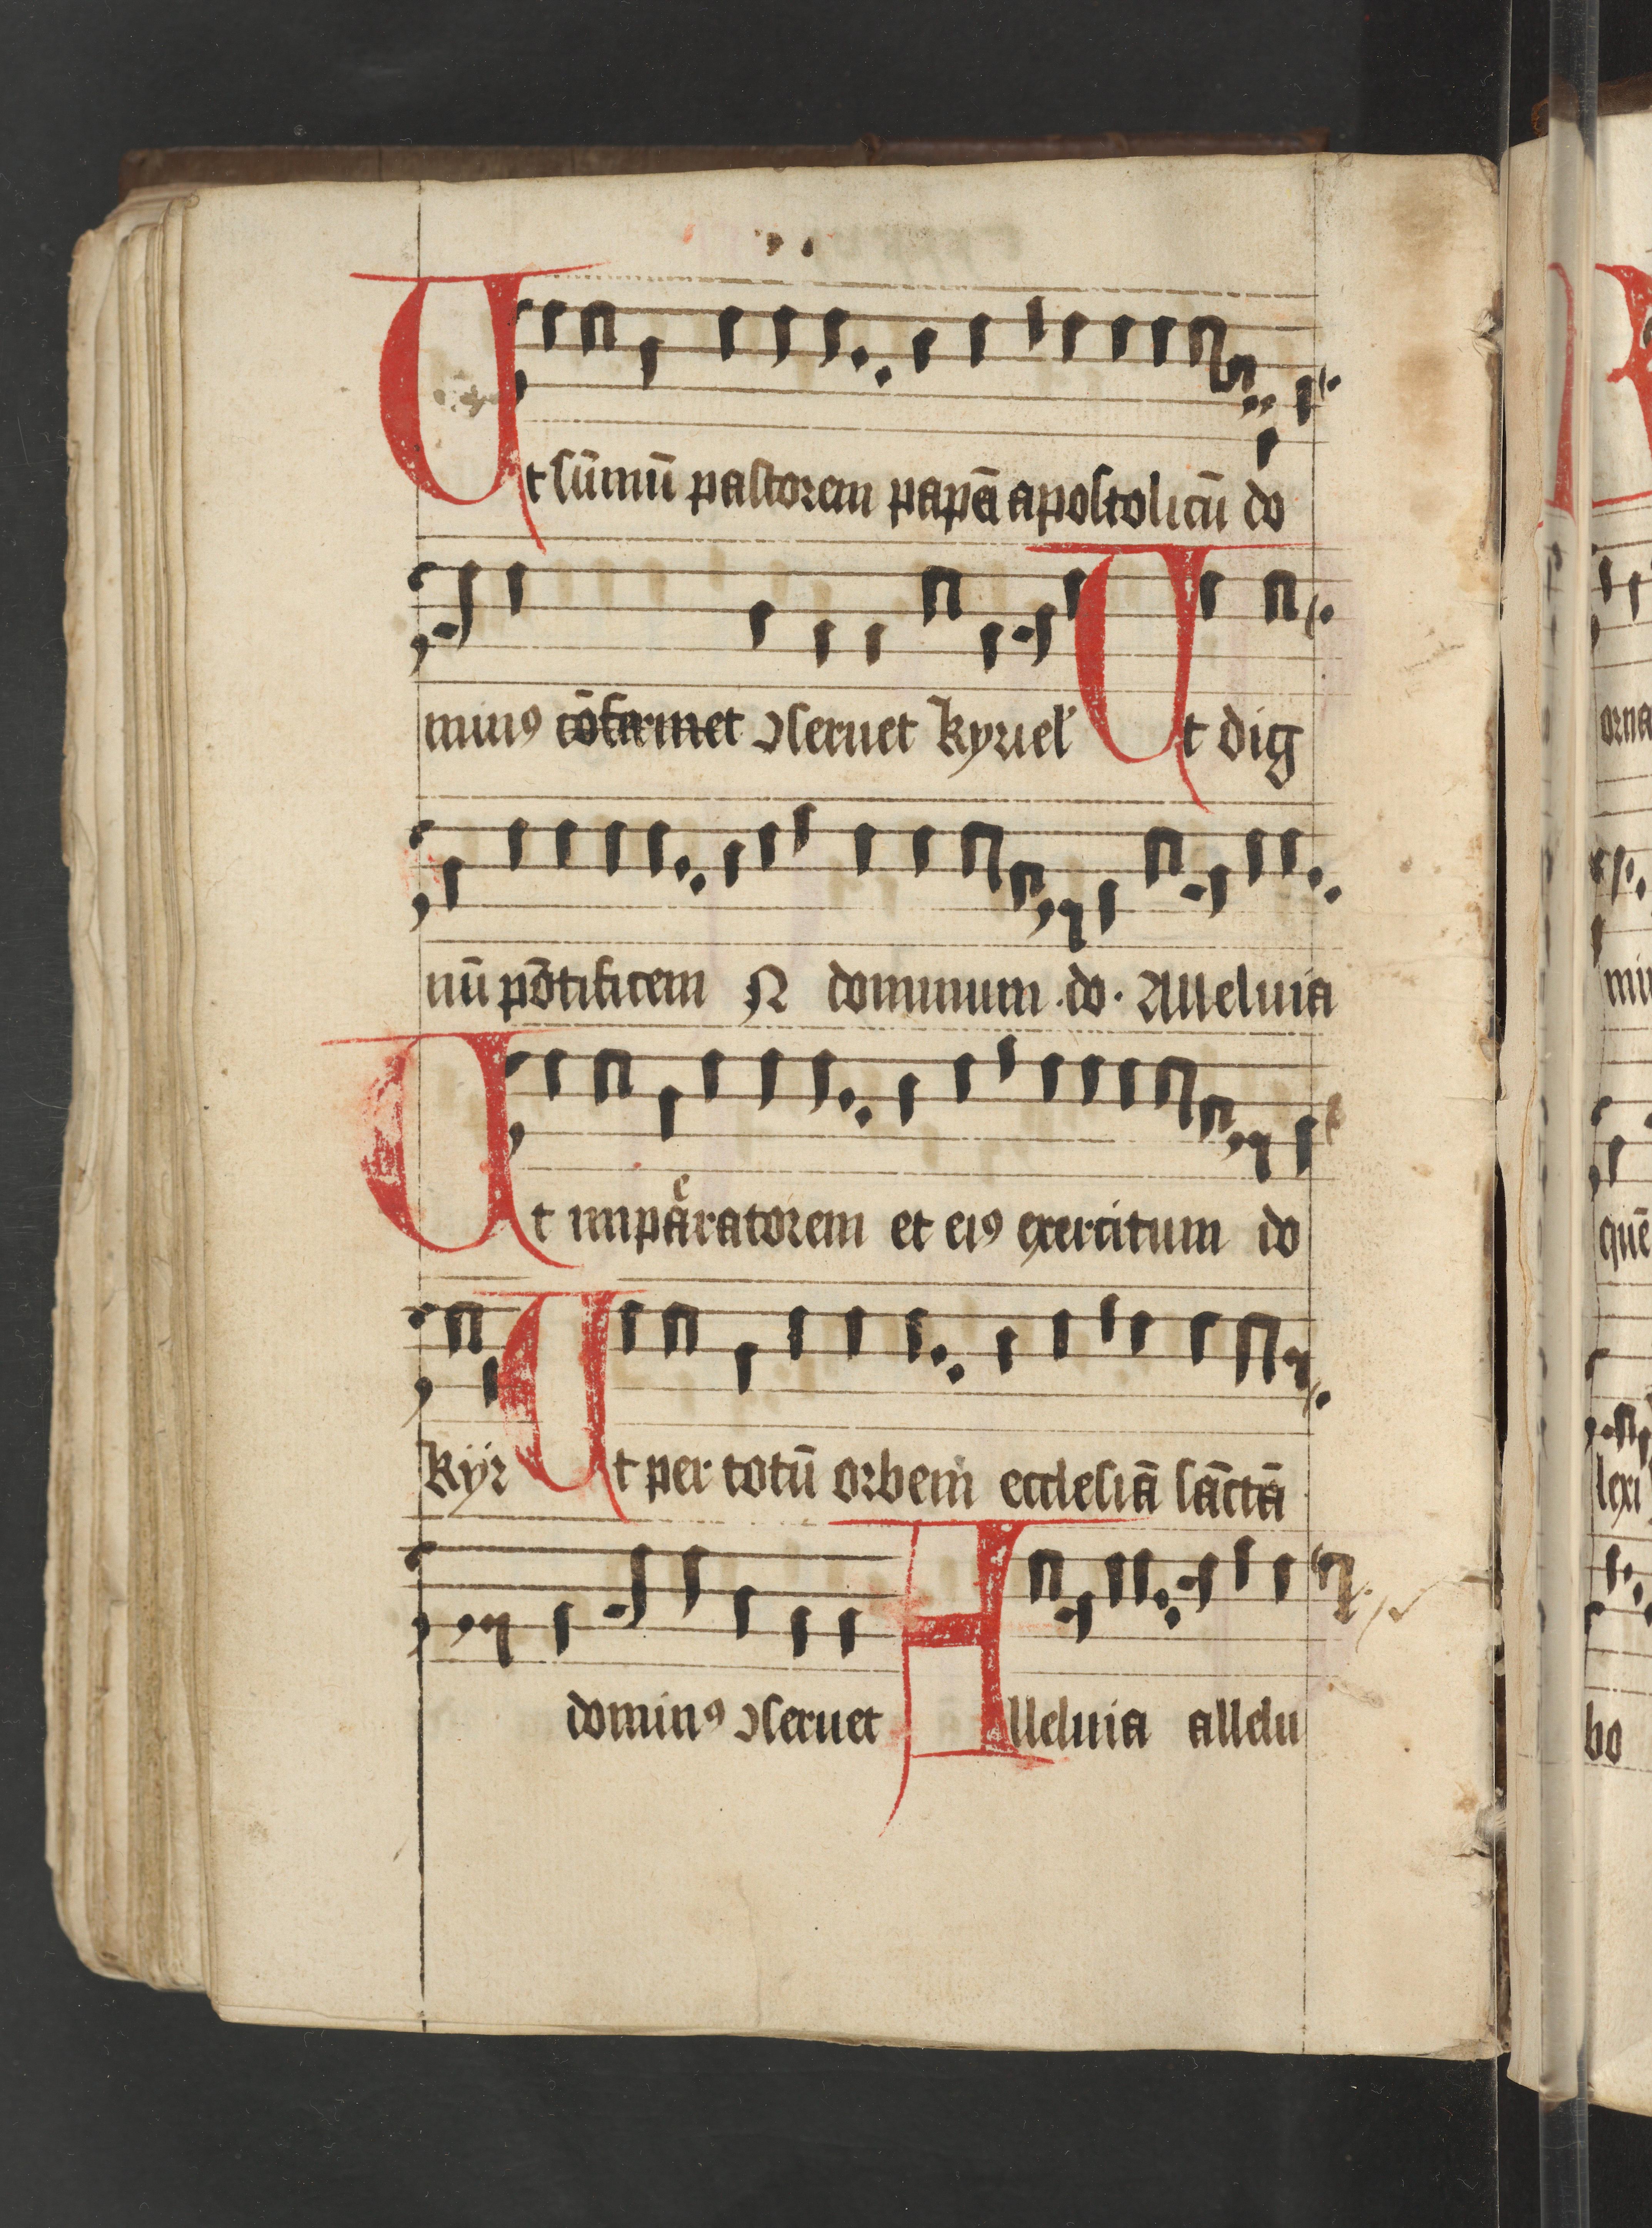 Ut sum̄ū pastorem papā apostolicū do
minꝯ cōfirmet ↄseruet kyriel̓ Ut dig
nū pōtificem N dominum .do. Alleluia
Ut impaͤratorem et eiꝯ exercitum do
kyr Ut per totū orbem ecclesiā sāctā
dominꝯ ↄseruet Alleluia allelu